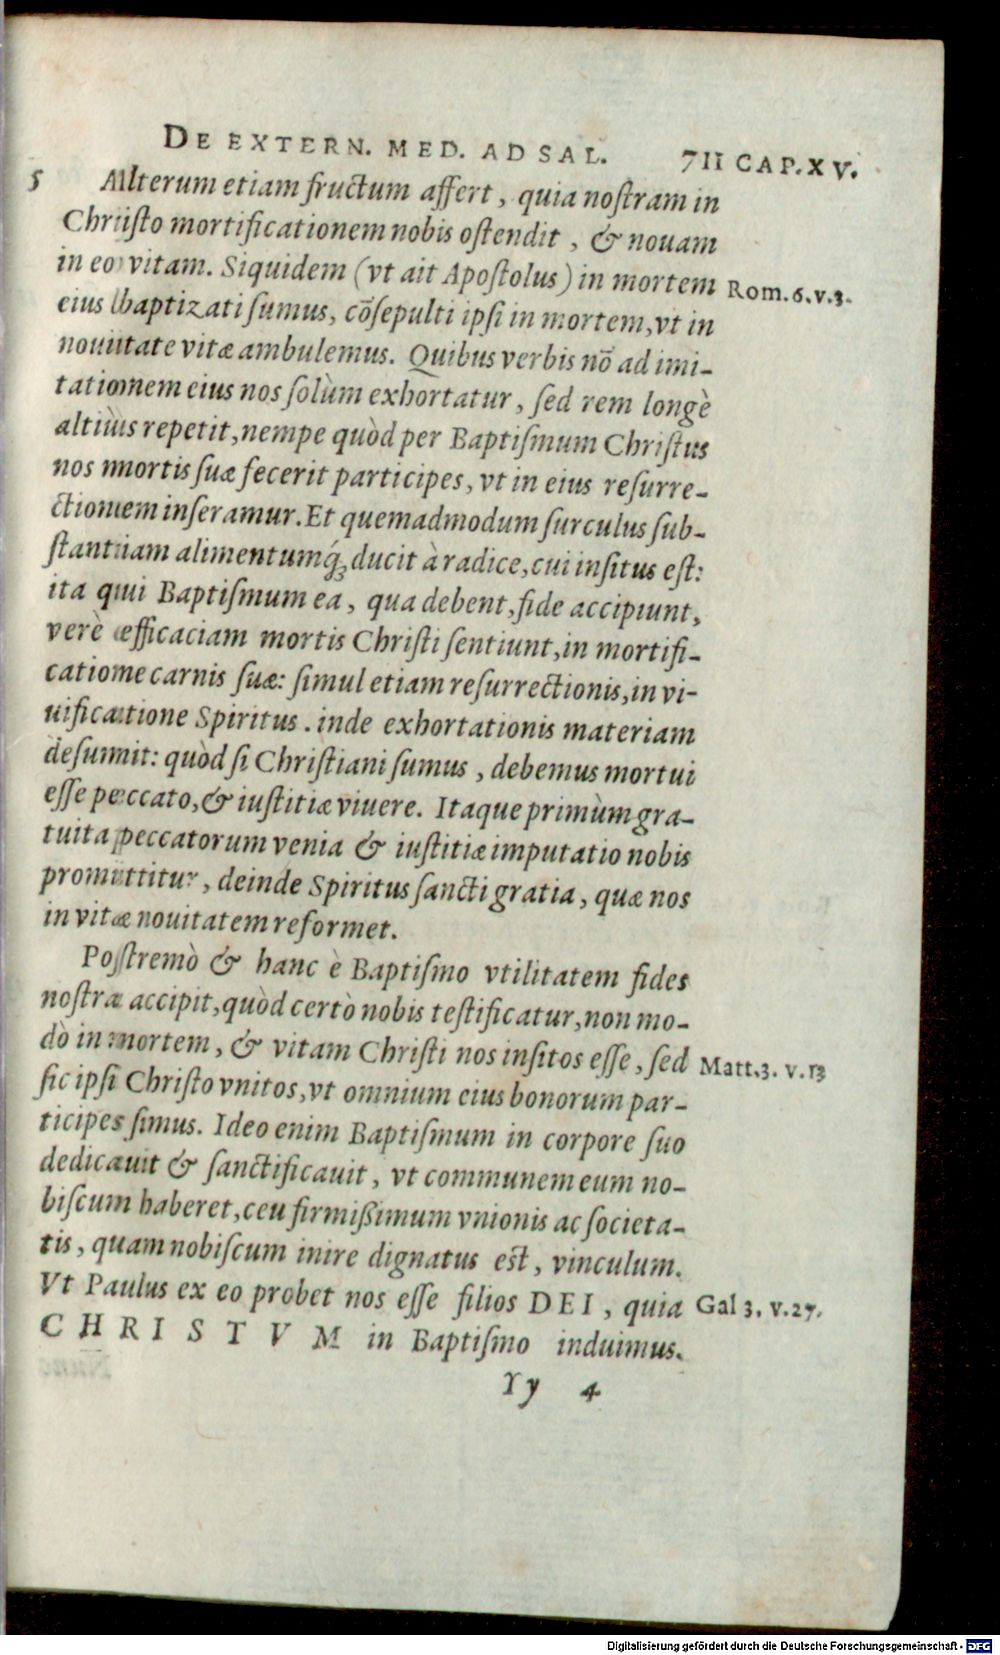 DE EXTERN. MED. AD SAL. 711 CAP. XV.
5 Alterum etiam fructum affert, quia noſtram in
Chriſto mortificationem nobis oſtendit, & nouam
in eo vitam. Siquidem (vt ait Apoſtolus) in mortem Rom. 6. v. 3.
eius baptizati ſumus, cōſepulti ipſi in mortem, vt in
nouitate vitæ ambulemus. Quibus verbis nō ad imi-
tationem eius nos ſolùm exhortatur, ſed rem longè
altiùs repetit, nempe quòd per Baptiſmum Chriſtus
nos mortis ſuæ fecerit participes, vt in eius reſurre-
ctionem inſeramur. Et quemadmodum ſurculus ſub-
ſtantiam alimentumq́; ducit à radice, cui inſitus eſt:
ita qui Baptiſmum ea, qua debent, fide accipiunt,
verè efficaciam mortis Chriſti ſentiunt, in mortifi-
catione carnis ſuæ: ſimul etiam reſurrectionis, in vi-
uificatione Spiritus. inde exhortationis materiam
deſumit: quòd ſi Chriſtiani ſumus, debemus mortui
eſſe peccato, & iuſtitiæ viuere. Itaque primùm gra-
tuita peccatorum venia & iuſtitiæ imputatio nobis
promittitur, deinde Spiritus ſancti gratia, quæ nos
in vitæ nouitatem reformet.
Poſtremò & hanc è Baptiſmo vtilitatem fides
noſtra accipit, quòd certò nobis teſtificatur, non mo-
dò in mortem, & vitam Chriſti nos inſitos eſſe, ſed Matt. 3. v. 13
ſic ipſi Chriſto vnitos, vt omnium eius bonorum par-
ticipes ſimus. Ideo enim Baptiſmum in corpore ſuo
dedicauit & ſanctificauit, vt communem eum no-
biſcum haberet, ceu firmißimum vnionis ac ſocieta-
tis, quam nobiſcum inire dignatus eſt, vinculum.
Vt Paulus ex eo probet nos eſſe filios DEI, quia Gal 3. v. 27.
CHRISTVM in Baptiſmo induimus.
Yy 4
Digitalisierung gefördert durch die Deutsche Forschungsgemeinschaft - DFG